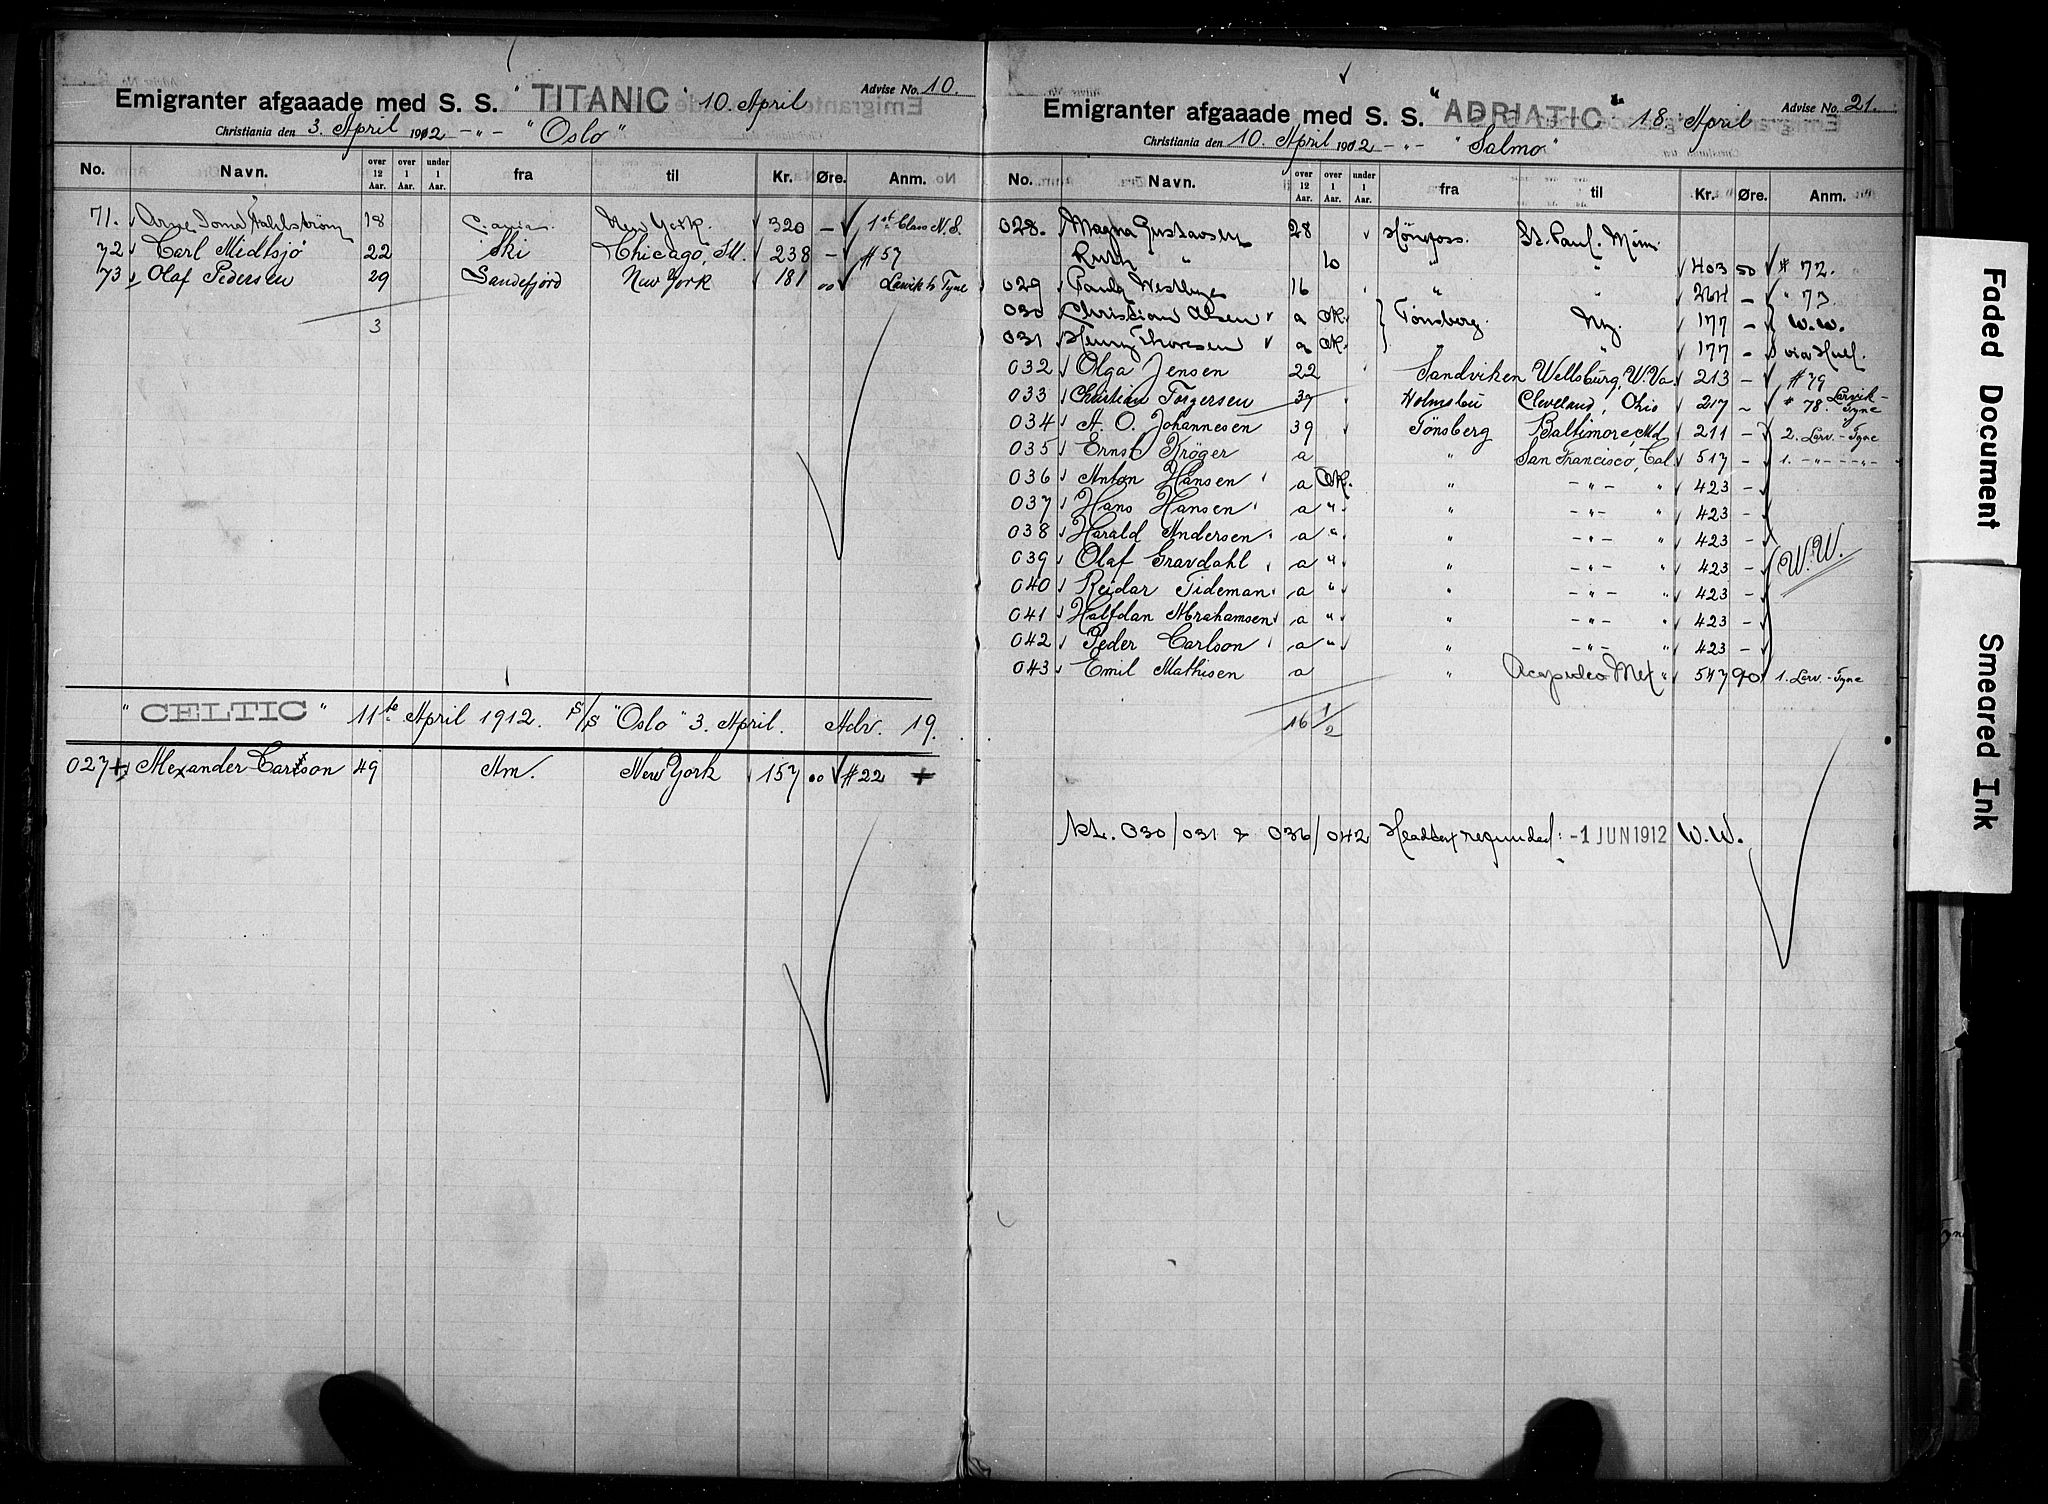 Emigranter afgaaade med S. S. "TITANIC" 10. April Advise No. 10.
Christiania den 3. April 1912 -„- "Oslo"
No. Navn. over 12 Aar. over 1 Aar. under 1 Aar. fra til Kr. Øre. Anm.
71. Arne Joma Fahlstrøm 18 C.ania New York. 320 - 1st Class N.S.
72 Carl Midtsjø 22 Ski Chicago, Ill. 238 - #57
73 Olaf Pedersen 29 Sandefjord New York 181 00 Larvik to Tyne
3
"CELTIC" 11te April 1912. S/S "Oslo" 3. April. Adv. 19.
027+ Alexander Carlson 49 Am. New York 157 00 #22 +
Emigranter afgaaade med S. S. "ADRIATIC" 18 April Advise No. 21.
Christiania den 10. April 1912 -„- "Salmo"
No. Navn. over 12 Aar. over 1 Aar. under 1 Aar. fra til Kr. Øre. Anm.
028. Magna Gustavsen 28 Hönefoss. St. Paul. Minn.
Ruth „ 10 „ „ 403 50 # 72.
029 Paula 16 „ „ 264 - „ 73
030 Christian Olsen a OK. Tønsberg. Ny. 177 - W.W.
031 Henry Thoresen a OK. „ „ 177 - via Hull.
032 Olga Jensen 22 Sandviken Wellsburg, W.Va. 213 - #79
033 Christian Torgersen 37 Holmsbu Cleveland, Ohio 217 - # 78. Larvik-Tyne
034 A. O. Johannesen 39 Tönsberg Baltimore, Md. 211 - 2. Larv.-Tyne
035 Ernst Kröger a „ San Francisco, Cal. 517 - 1. -„- -„-
036 Anton Hansen a OK. „ -„- „ 423 -
037 Hans Hansen a „ „ -„- „ 423 -
038 Harald Andersen a „ „ -„- „ 423 -
039 Olaf Gravdahl a „ „ -„- „ 423 - W.W.
040 Reidar Tideman a „ „ -„- „ 423 -
041 Halfdan Abrahamsen a „ „ -„- „ 423 -
042 Peder Carlson a „ „ -„- „ 423 -
043 Emil Mathisen a „ Acapulco Mex „ 547 90 1. Larv.-Tyne
16 1/2
kt. 030/031 & 036/042 Headtax refunded: -1 JUN 1912 W.W.
Faded Document
Smeared Ink